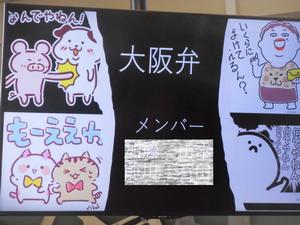 なんでやねん!
大阪弁
いくらに
まけてくれるん?
もーええわ
メンバー